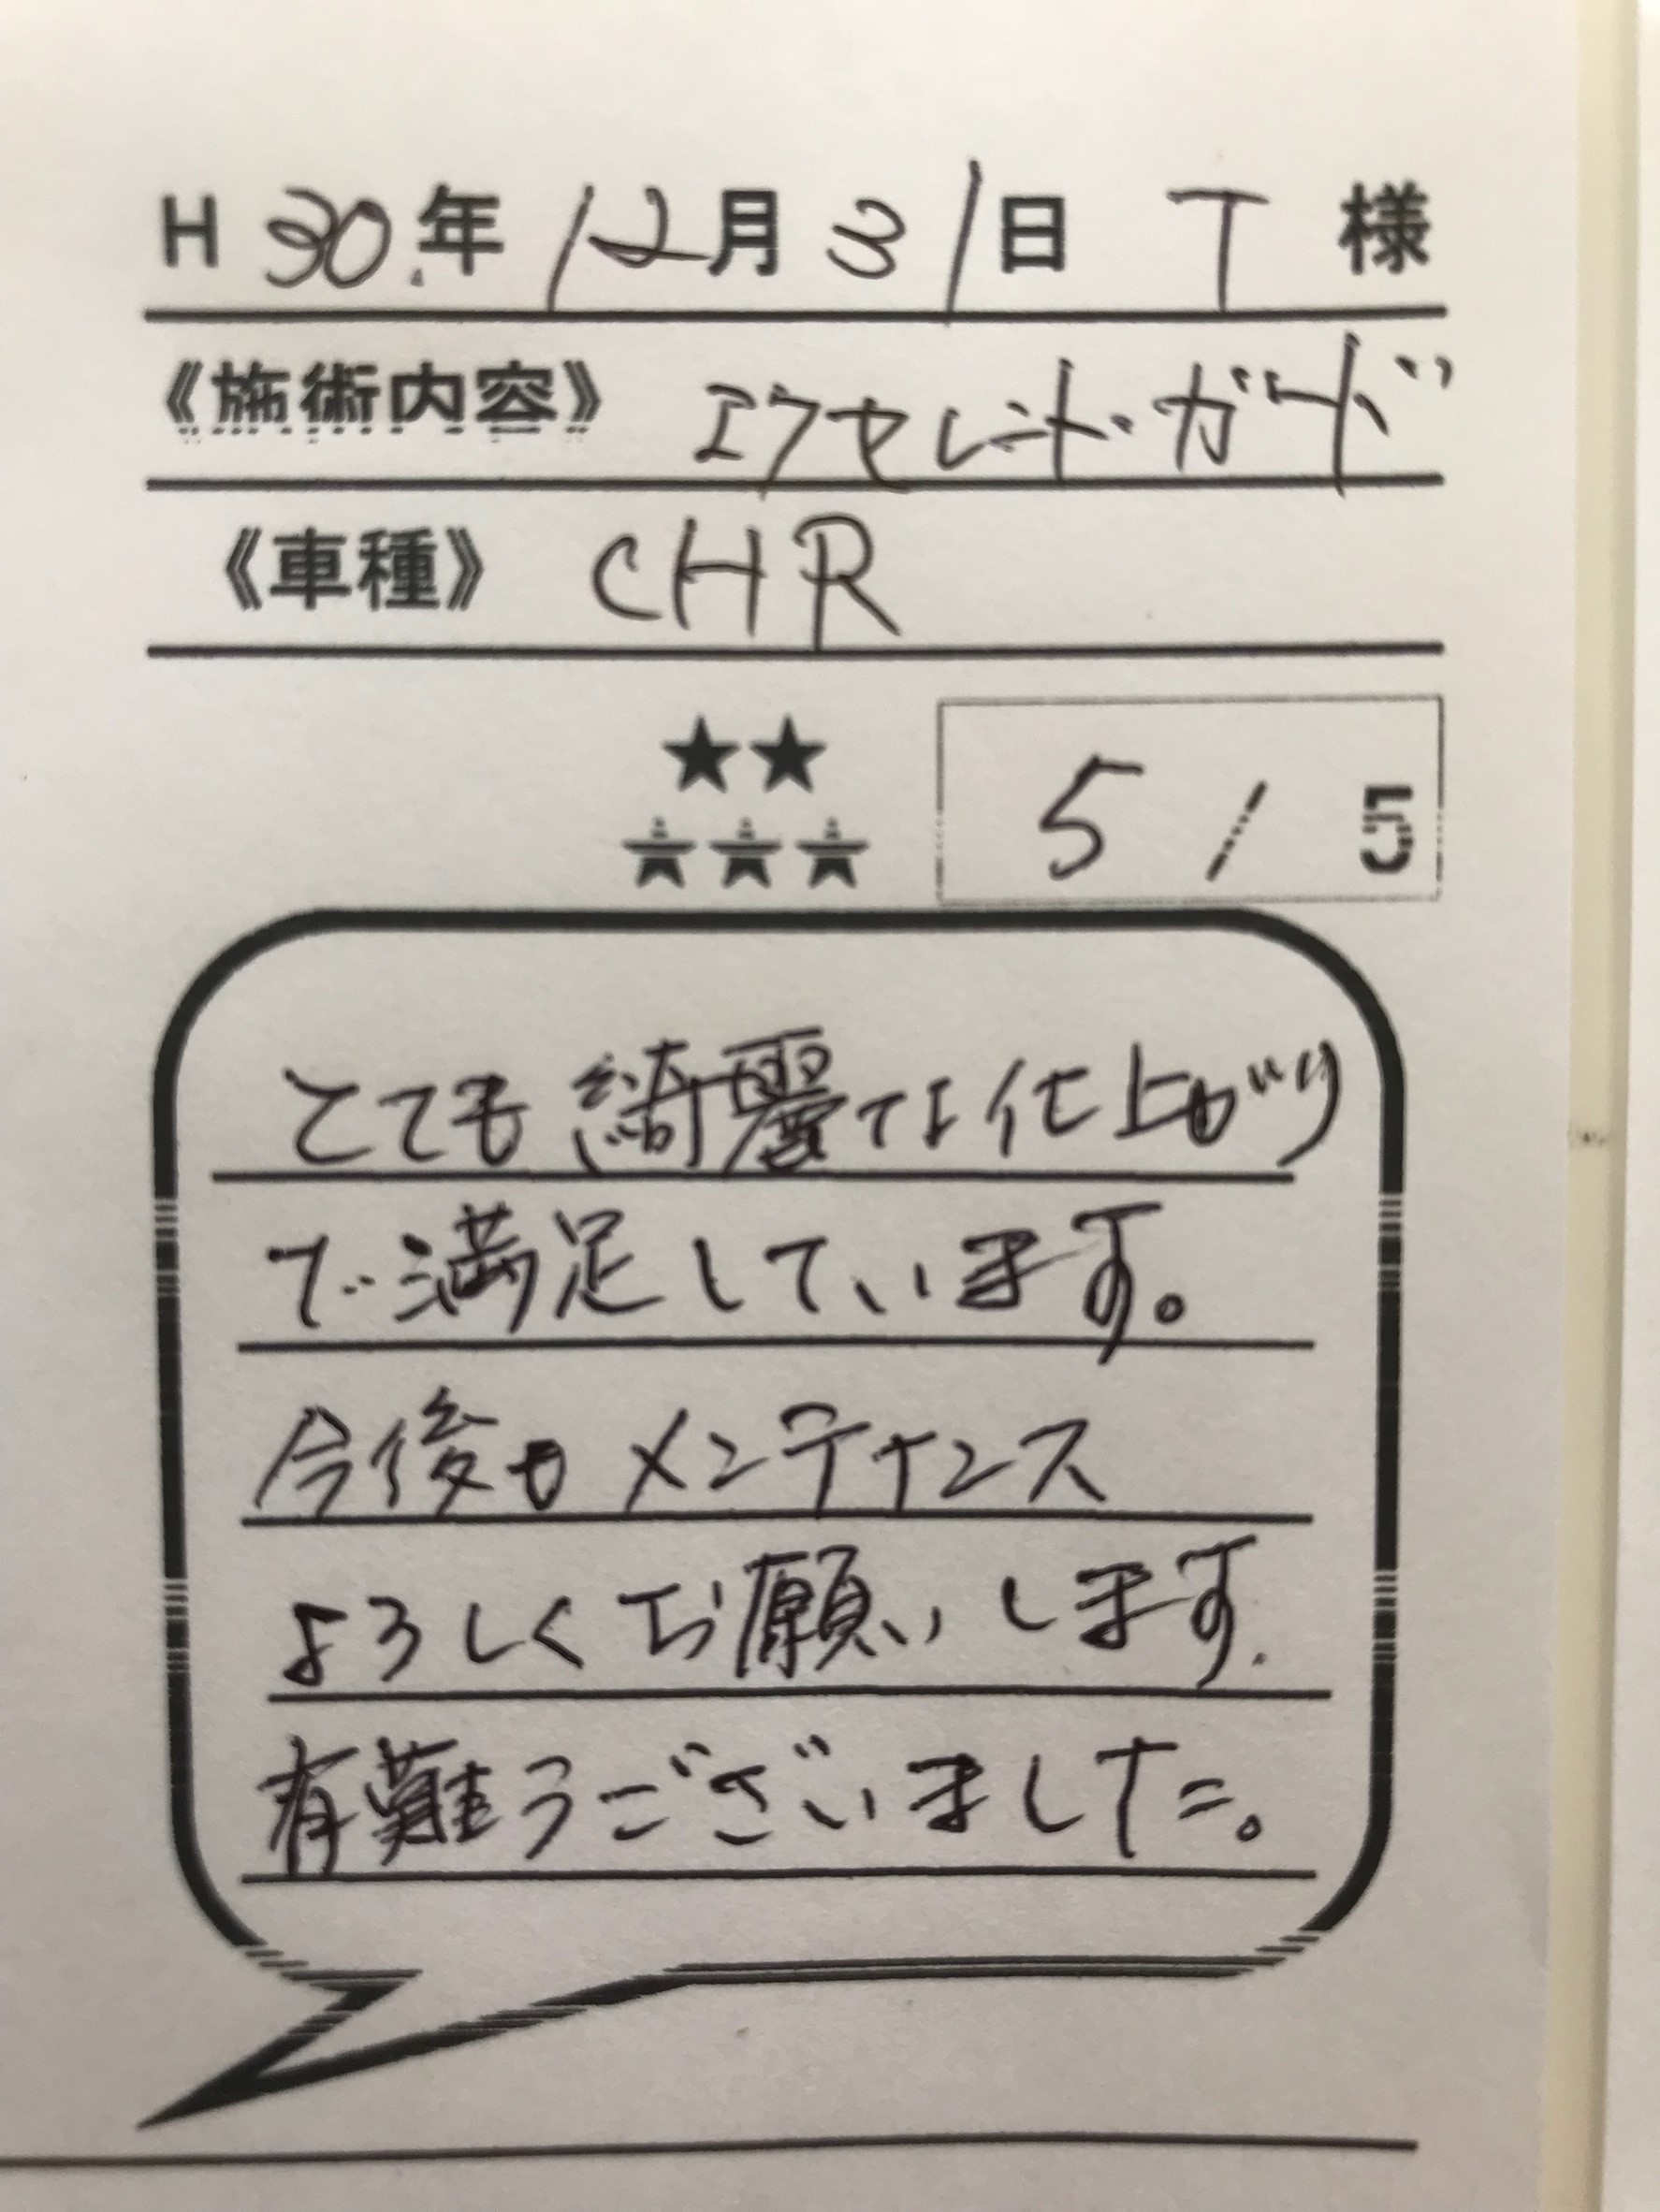 H 30.年 12月 31日 T 様
《施術内容》 エクセレント・ガード
《車種》 CHR
★★
★★★
5 / 5
とても綺麗な仕上がり
で満足しています。
今後もメンテナンス
よろしくお願いします.
有難うございました。